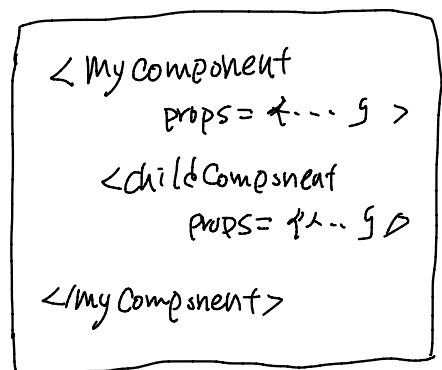 <mycomponent
props={...}>
<childComponent
props={...}/>
</myComponent>